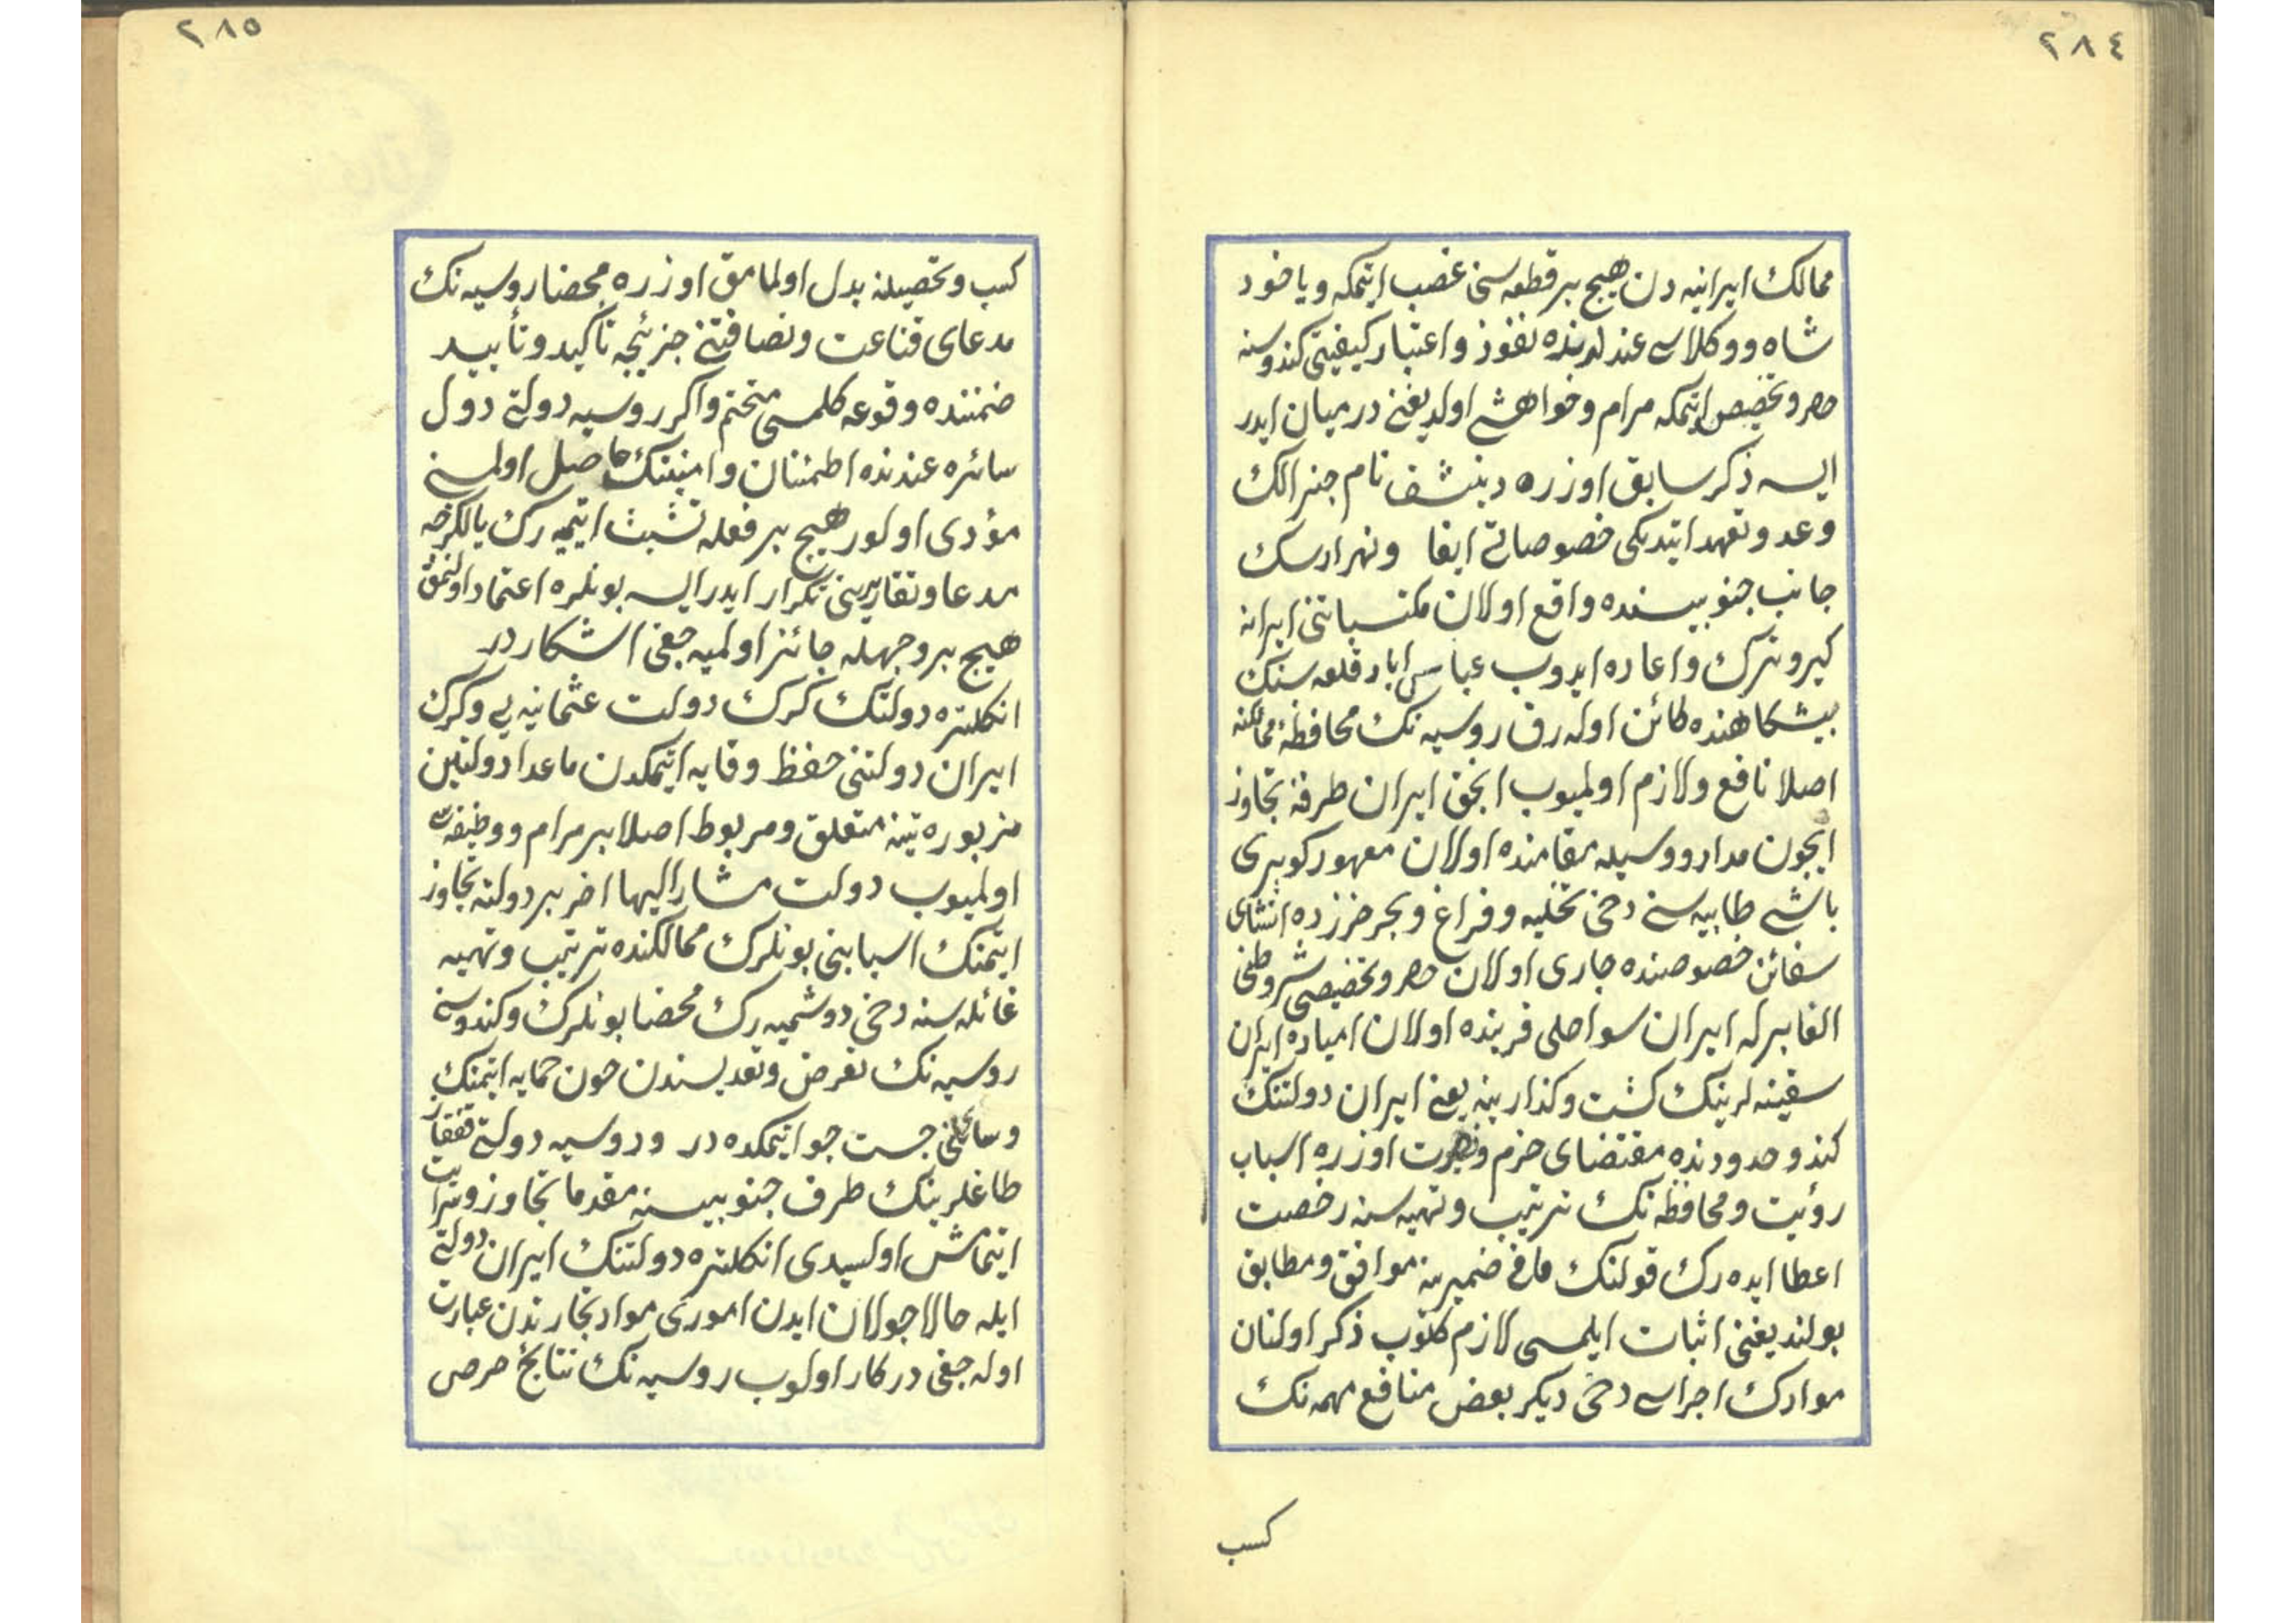 ٢٨٤
ممالك ايرانيه دن هيچ بر قطعه سنى غصب ايتمكه ويا خود
شاه ووكلاسى عندلرنده نفوذ واعتبار كيفيتى كندوسنه
حصر وتخصيص ايتمكه مرام وخواهشى اولديغنى درميان ايدر
ايسه ذكر سابق اوزره نام جنرالك
وعد وتعهد ايتديكى خصوصاتى ايفا ونهر ارسك
جانب جنوبيسنده واقع اولان مكتسباتنى ايرانه
كيرو ترك واعاده ايدوب عباس اباد قلعه سنك
پيشكاهنده كائن اوله رق روسيه نك محافظۀ ممالكنه
اصلا نافع ولازم اولميوب انجق ايران طرفنه تجاوز
ايچون مدار ووسيله مقامنده اولان معهود كوپرى
باشى طابيه سنى دخى تخليه وفراغ وبحر خزرده انشاى
سفائن خصوصنده جارى اولان حصر وتخصيص شروطنى
الغا برله ايران سواحلى قربنده اولان اميادۀ ايران
سفينه لرينك كشت وكذارينه يعنى ايران دولتنك
كندو حدودنده مقتضاى حزم وبصيرت اوزره اسباب
رؤيت ومحافظه نك ترتيب وتهيه سنه رخصت
اعطا ايده رك قولنك ما فى ضميرينه موافق ومطابق
بولنديغنى اثبات ايلمسى لازم كلوب ذكر اولنان
موادك اجراسى دخى ديكر بعض منافع مهمه نك
كسب
٢٨٥
كسب وتحصيلنه بدل اولمامق اوزره محضا روسيه نك
مدعاى قناعت ونصافتنى جزئيجه تأكيد وتأييد
ضمننده وقوعه كلمسى متحتم واكر روسيه دولتى دول
سائره عندنده اطمئنان وامنيتنك حاصل اولمسنى
مؤدى اولور هيچ بر فعله تشبث ايتميه رك يالكزجه
مدعا وتقاريرينى تكرار ايدر ايسه بونلره اعتماد اولنمق
هيچ بر وجهله جائز اولميه جغى اشكاردر
انكلتره دولتنك كرك دولت عثمانيه يى وكرك
ايران دولتنى حفظ وقايه ايتمكدن ماعدا دولتين
مزبوره تينه متعلق ومربوط اصلا بر مرام ووظيفه سى
اولميوب دولت مشار اليها اخر بر دولته تجاوز
ايتمنك اسبابنى بونلرك ممالكنده ترتيب وتهيه
غائله سنه دخى دوشميه رك محضا بونلرك وكندوسنى
روسيه نك تعرض وتعديسندن صون حمايه ايتمنك
وسائلنى جست جو ايتمكده در وروسيه دولتى قفقاز
طاغلرينك طرف جنوبيسنه مقدما تجاوز وسرايت
ايتمامش اولسيدى انكلتره دولتنك ايران دولتى
ايله حالا جولان ايدن امورى مواد تجارتدن عبارت
اوله جغى دركار اولوب روسيه نك نتايج حرص